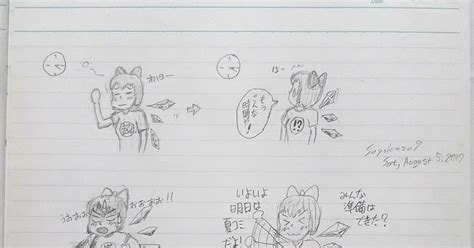 Date
はっ
もう
こんな
!?
Sat, August 5, 2017
うおおお
おおおお!!
いよいよ
明日は
夏コミ
だよ!
みんな
準備は
できた?